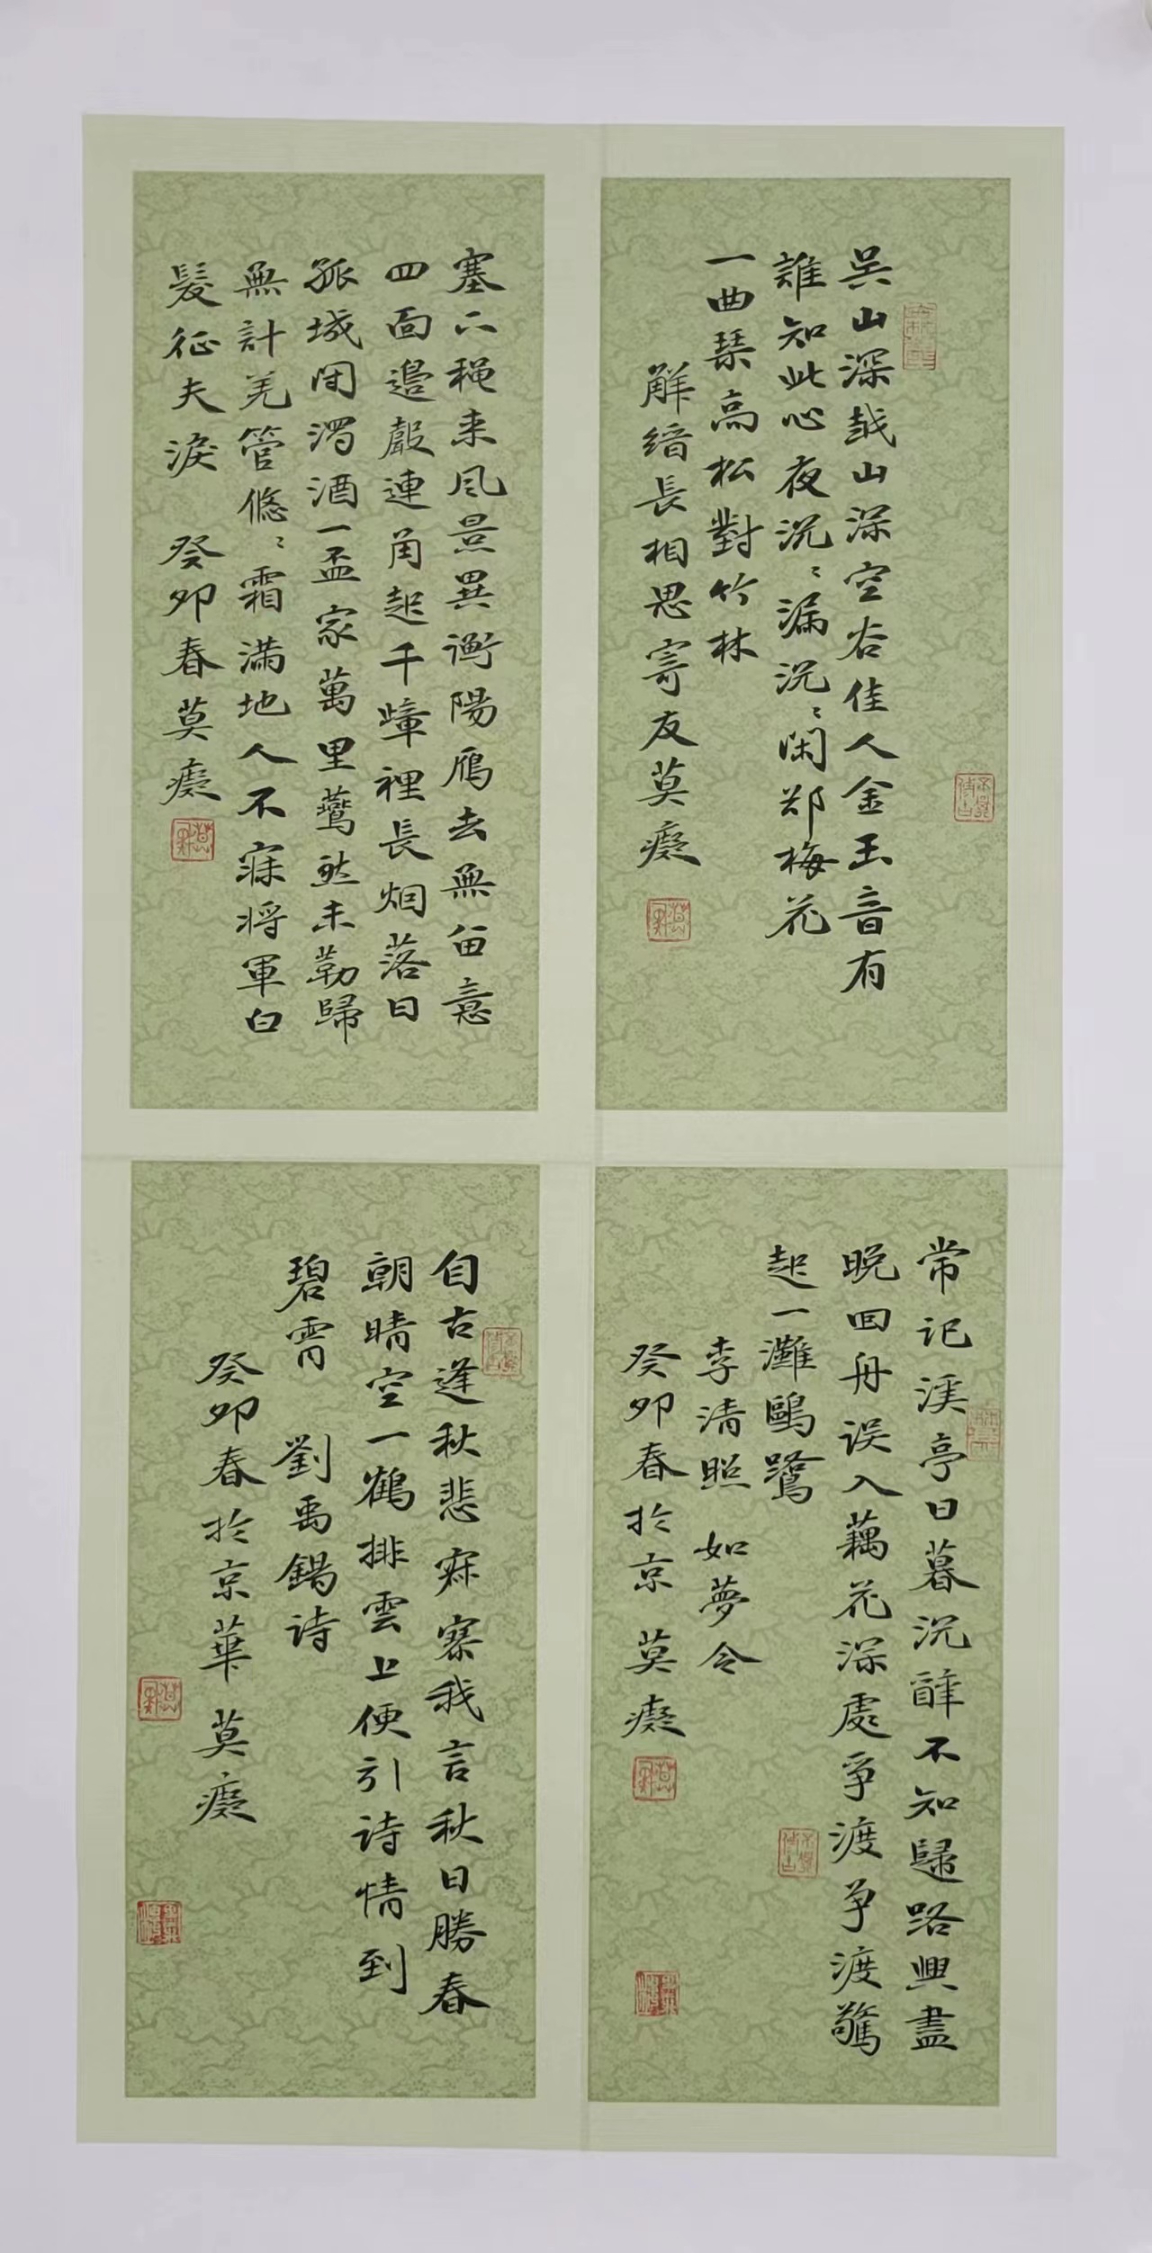 吴山深越山深空谷佳人金玉音有
誰知此心夜沉〻漏沉〻闲却梅花
一曲琴高松對竹林
解缙長相思寄友莫癡
塞下秋来風景異衡陽雁去無留意
四面邊聲連角起千嶂裡長烟落日
孤城闭濁酒一盃家萬里燕然未勒歸
無計羌管悠〻霜满地人不寐将軍白
髮征夫淚 癸卯春莫癡
常记溪亭日暮沉醉不知歸路興盡
晚回舟误入藕花深處爭渡争渡驚
起一灘鷗鷺
李清照 如夢令
癸卯春於京 莫癡
自古逢秋悲寂寥我言秋日勝春
朝晴空一鶴排雲上便引诗情到
碧霄 劉禹錫诗
癸卯春於京華 莫癡